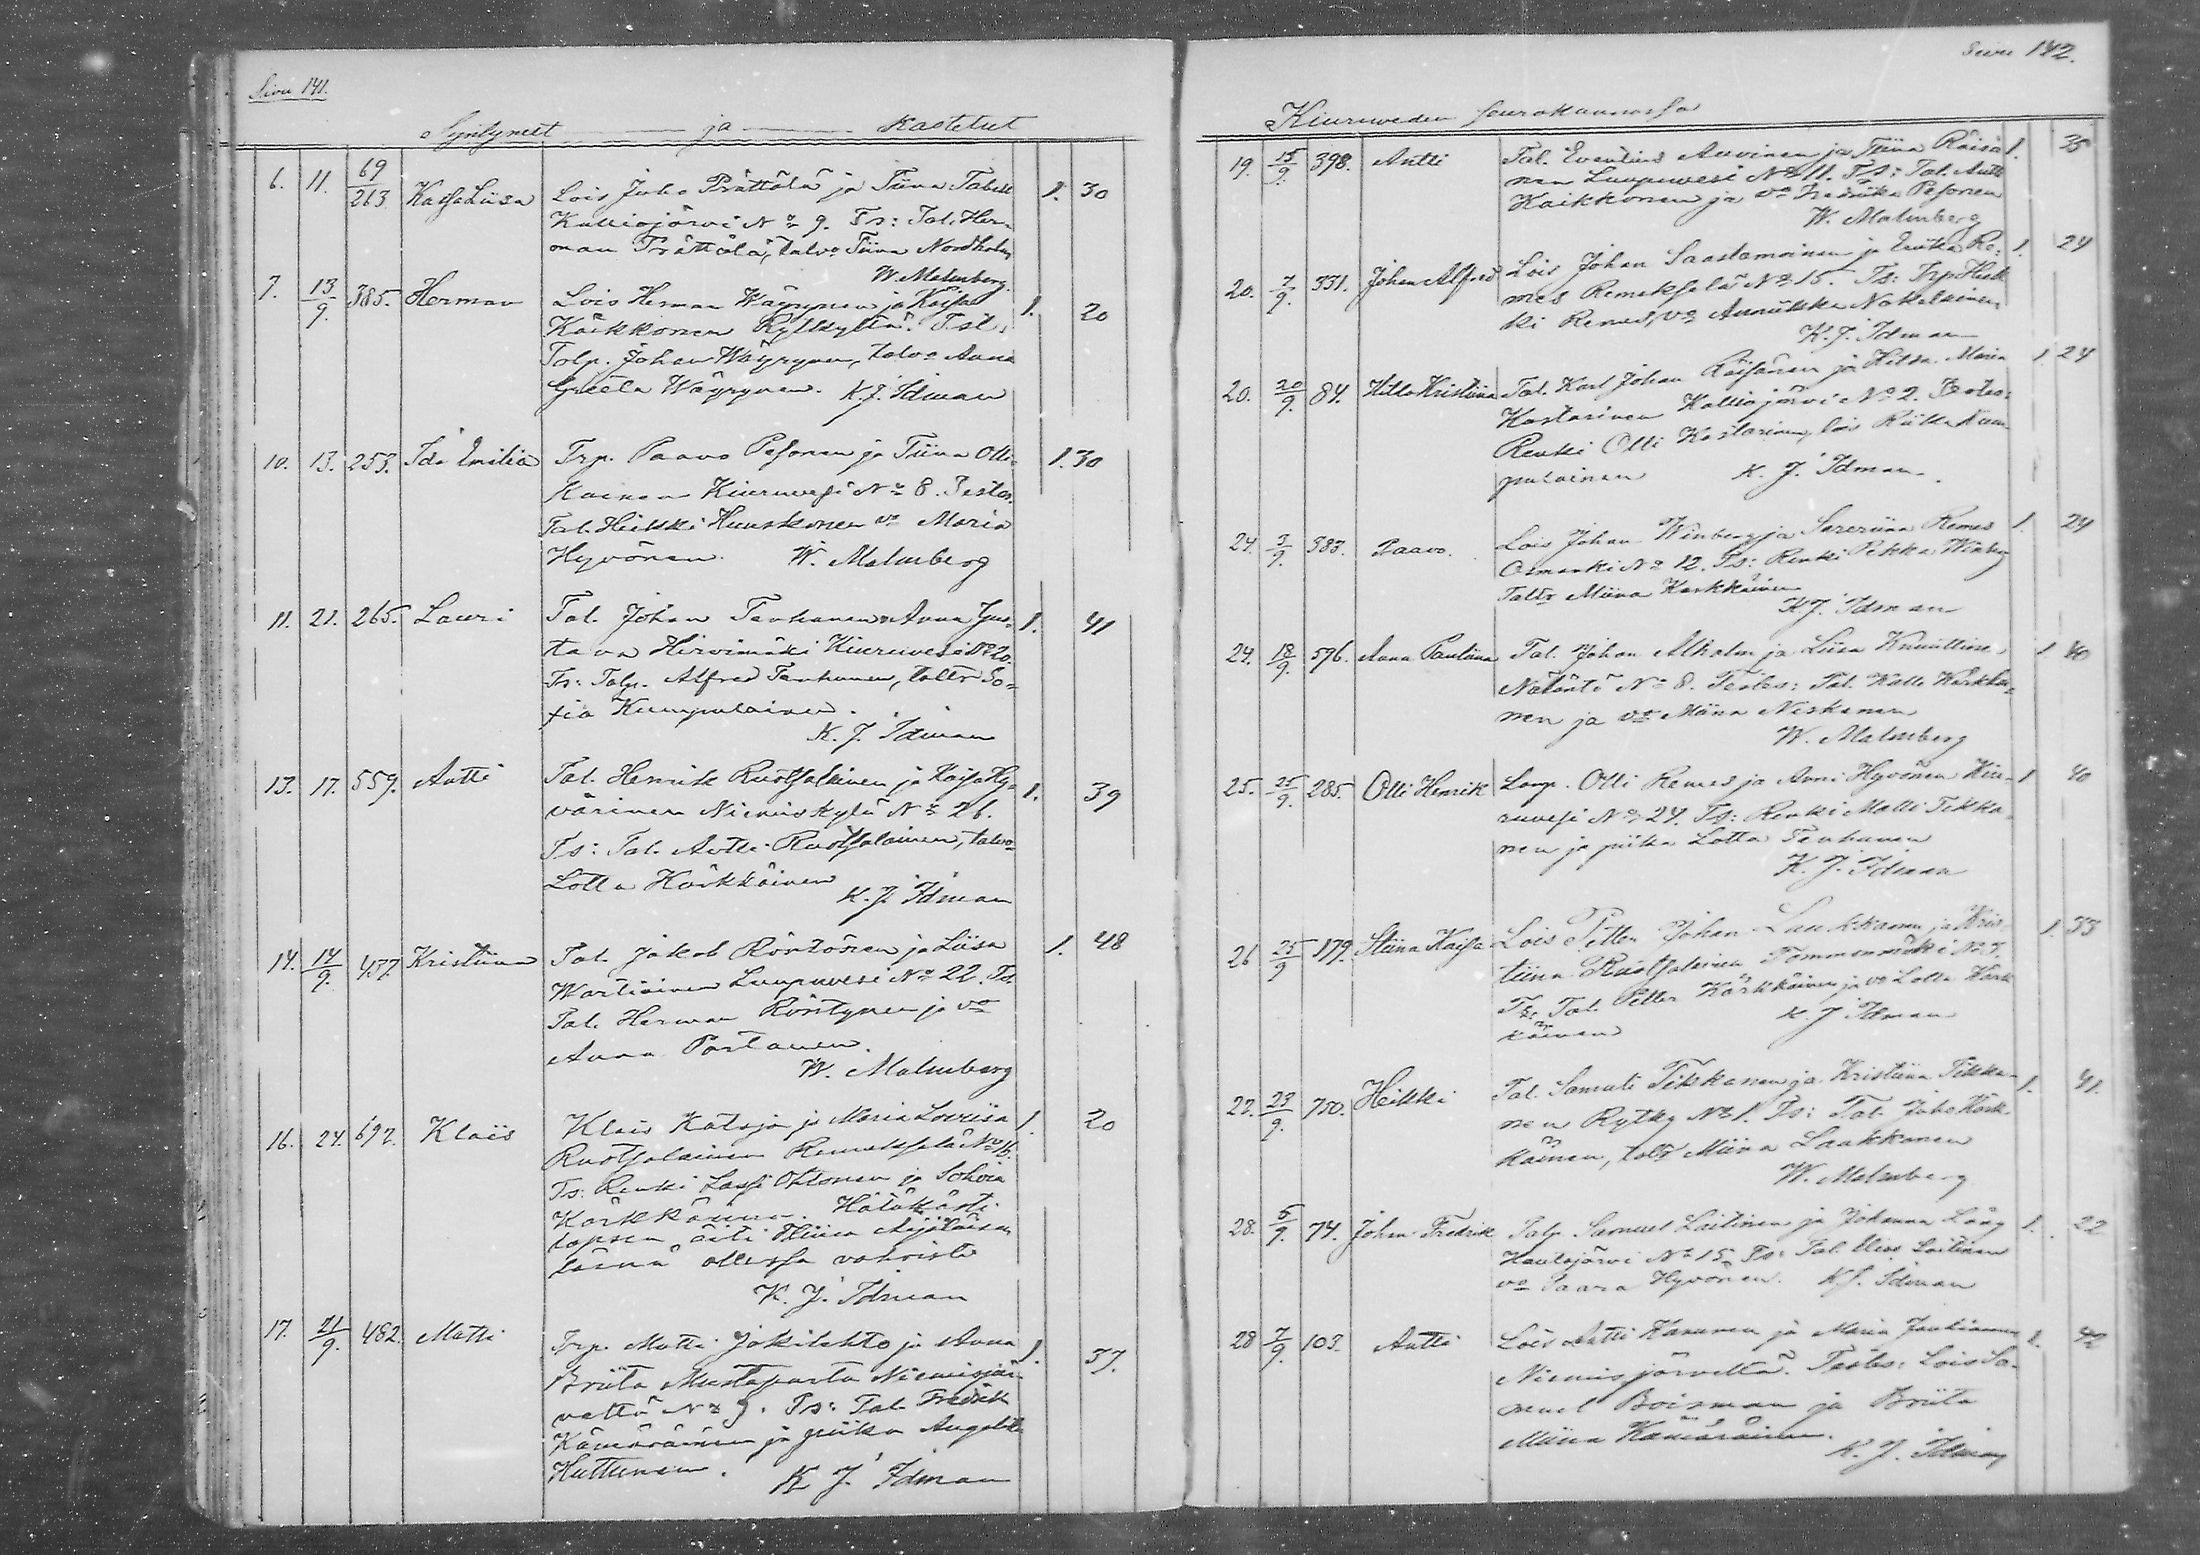 Sivu 141.
Syntyneet ja Kastetut
6. 11. 69/213 Kaisa Liisa Lois Juho Prättälä ja Tiina Tabell 1. 30
Kalliojärvi No 9. Ts: Tal. Her-
man Prättälä, talvo Tiina Nordholm
W. Malmberg.
7. 13/9. 385. Herman Lois Herman Wäyrynen ja Kaisa 1. 20
Käkkönen Rytkyltä. Tst.
Talp. Johan Wäyrynen, talvo Anna
Greeta Wäyrynen. K. J. Idman
10. 13. 253. Ida Emilia Trp. Paavo Pesonen ja Tiina Olli- 1. 30
kainen Kiuruvesi No 8. Testes.
Tal. Heikki Huuskonen vo Maria
Hyvönen. W. Malmberg
11. 21. 265. Lauri Tal. Johan Tenhunen Anna Gus- 1. 41
tava Hirvimäki Kiuruvesi No 20.
Ts: Talp. Alfred Tenhunen, taltr So-
fia Kumpulainen.
K. J. Idman
13. 17. 559. Antti Tal. Henrik Ruotsalainen ja Kaisa Hy- 1. 39
värinen Niemiskylä No 26.
Ts: Tal. Antti Ruotsalainen, talvo
Lotta Kärkkäinen
K. J. Idman
14. 14/9. 457. Kristiina Tal. Jakob Röntönen ja Liisa 1. 48
Wartiainen Luupuvesi No 22. Ts.
Tal. Herman Röntynen ja vo
Anna Partanen.
W. Malmberg
16. 24. 692. Klaës Klaës Kataja ja Maria Lovisa 1. 20
Ruotsalainen Remekselä No 16.
Ts: Renki Lassi Ohtonen ja
Kärkkäinen. Hätäkasti
lapsen äiti Tiina
läsnä ollessa vahvisti
K. J. Idman
17. 21/9. 482. Matti Trp. Matti Jokilehto ja Anna 1. 37.
Briita Mustaparta Niemisjär-
veltä No 9. Ts: Tal. Fredrik
Kämäräinen ja piika
Huttunen. K. J. Idman
Sivu 142.
Kiuruweden seurakunnassa
19. 15/9. 398. Antti Tal. Eventius Auvinen ja Tiina Räisä- 1. 35
nen Luupuvesi No 11. Ts: Tal. Antti
Kaikkonen ja vo Fredrika Pesonen
W. Malmberg
20. 7/9. 331. Johan Alfred Lois Johan Saastamoinen ja Erika Re- 1. 24
mes Remekselä No 15. Ts: Trp. Heik-
ki Remes, vo Anniikka Nokelainen
K. J. Idman
20. 20/9. 84. Hilda Kristiina Tal. Karl Johan Räisänen ja Hilda Maria 1 24
Kastarinen Kalliojärvi No 2. Testes:
Renki Olli Kastarinen, lois Riitta Kum-
pulainen K. J. Idman.
24. 3/9. 383. Paavo. Lois Johan Winberg ja Severiina Remes 1. 24
Osmanki No 12. Ts: Renki Pekka Winberg
Taltr Miina Karkkainen
K. J. Idman
24. 18/9. 596. Anna Pauliina Tal. Johan Alholm ja Liisa Knuuttinen 1 40
Näläntö No 8. Testes: Tal. Kalle Kärkkäi-
nen ja vo Miina Niskanen
W. Malmberg
25. 25/9. 285. Olli Henrik Lamp. Olli Remes ja Anni Hyvönen Kiu- 1 40
ruvesi No 24. Ts: Renki Matti Tikka-
nen ja piika Lotta Tenhunen
K. J. Idman
26 25/9 179. Stiina Kaisa Lois Petter Johan Laukkanen ja Kris- 1. 33
tiina Ruotsalainen Tommonmäki No 7.
Ts: Tal. Petter Kärkkäinen ja vo Lotta Kärk-
käinen K. J. Idman
27. 23/9. 750. Heikki Tal. Samuli Tikkanen ja Kristiina Tikka- 1. 41.
nen Rytky No 1. Ts: Tal. Juho Kärk-
käinen, taltr Miina Laakkonen
W. Malmberg
28. 5/9. 74. Johan Fredrik Talp. Samuel Laitinen ja Johanna Lång 1. 22
Kautojärvi No 15 Ts: Tal. Elias Laitinen
vo Saara Hyvönen. K. J. Idman
28 7/9. 103. Antti Lois Antti Kanunen ja Maria 1. 42
Niemisjärveltä. Testes: Lois Sa-
muel Boisman ja Briita
Miina Kämäräinen.
K. J. Idman